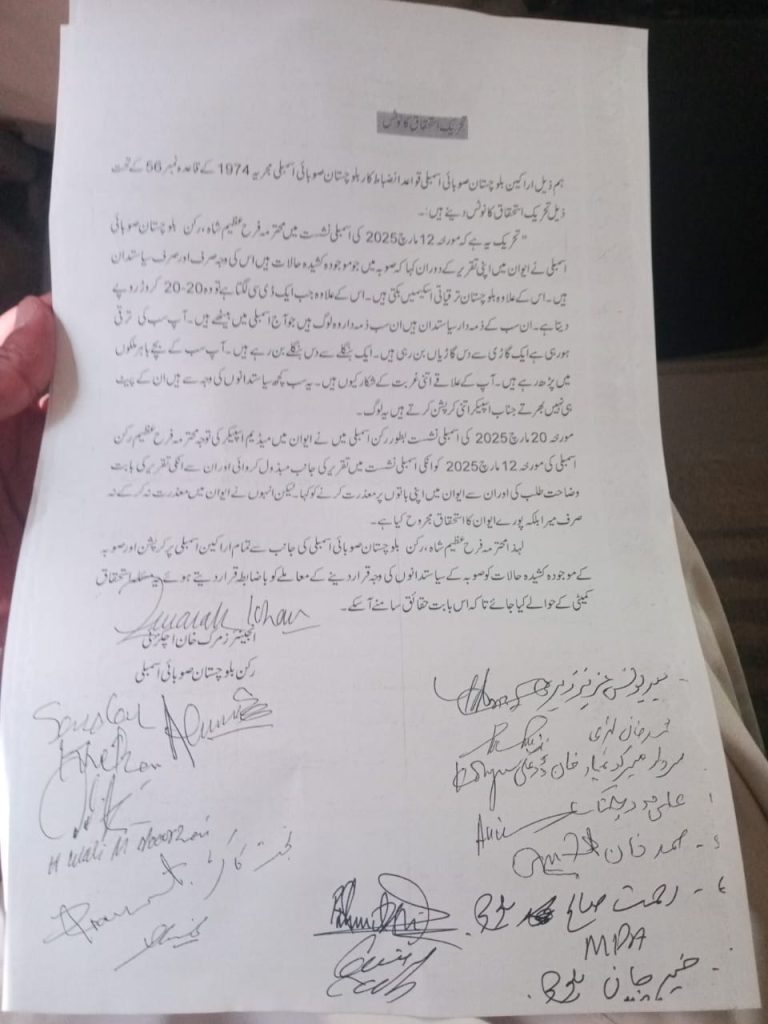 تحریک استحقاق کا نوٹس
ہم ذیل اراکین بلوچستان صوبائی اسمبلی قواعد انضباط کار بلوچستان صوبائی اسمبلی مجریہ 1974 کے قاعدہ نمبر 56 کے تحت
ذیل تحریک استحقاق کا نوٹس دیتے ہیں:۔
"تحریک یہ ہے کہ مورخہ 12 مارچ 2025 کی اسمبلی نشست میں محترمہ فرح عظیم شاہ، رکن بلوچستان صوبائی
اسمبلی نے ایوان میں اپنی تقریر کے دوران کہا کہ صوبہ میں جو موجودہ کشیدہ حالات ہیں اس کی وجہ صرف اور صرف سیاستدان
ہیں۔ اس کے علاوہ بلوچستان ترقیاتی اسکیمیں بکتی ہیں۔ اس کے علاوہ جب ایک ڈی سی لگتا ہے تو وہ 20-20 کروڑ روپے
دیتا ہے۔ ان سب کے ذمہ دار سیاستدان ہیں ان سب ذمہ دار وہ لوگ ہیں جو آج اسمبلی میں بیٹھے ہیں۔ آپ سب کی ترقی
ہو رہی ہے ایک گاڑی سے دس گاڑیاں بن رہی ہیں۔ ایک بنگلے سے دس بنگلے بن رہے ہیں۔ آپ سب کے بچے باہر ملکوں
میں پڑھ رہے ہیں۔ آپ کے علاقے اتنی غربت کے شکار کیوں ہیں۔ یہ سب کچھ سیاستدانوں کی وجہ سے ہیں ان کے پیٹ
ہی نہیں بھرتے جناب اسپیکر اتنی کرپشن کرتے ہیں یہ لوگ۔
مورخہ 20 مارچ 2025 کی اسمبلی نشست بطور رکن اسمبلی میں نے ایوان میں میڈیم اسپیکر کی توجہ محترمہ فرح عظیم رکن
اسمبلی کی مورخہ 12 مارچ 2025 کو انکی اسمبلی نشست میں تقریر کی جانب مبذول کروائی اور ان سے انکی تقریر کی بابت
وضاحت طلب کی اور ان سے ایوان میں اپنی باتوں پر معذرت کرنے کو کہا۔ لیکن انہوں نے ایوان میں معذرت نہ کر کے نہ
صرف میرا بلکہ پورے ایوان کا استحقاق مجروح کیا ہے۔
لہذا محترمہ فرح عظیم شاہ، رکن بلوچستان صوبائی اسمبلی کی جانب سے تمام اراکین اسمبلی پر کرپشن اور صوبہ
کے موجودہ کشیدہ حالات کو صوبہ کے سیاستدانوں کی وجہ قرار دینے کے معاملے کو باضابطہ قرار دیتے ہوئے یہ مسئلہ استحقاق
کمیٹی کے حوالے کیا جائے تاکہ اس بابت حقائق سامنے آ سکے۔
Zmarak Khan
انجینئر زمرک خان اچکزئی
رکن بلوچستان صوبائی اسمبلی
میر یونس عزیز زہری
محمد خان لہڑی
خان
صمد خان
رحمت صالح بلوچ
MPA
خیر جان بلوچ